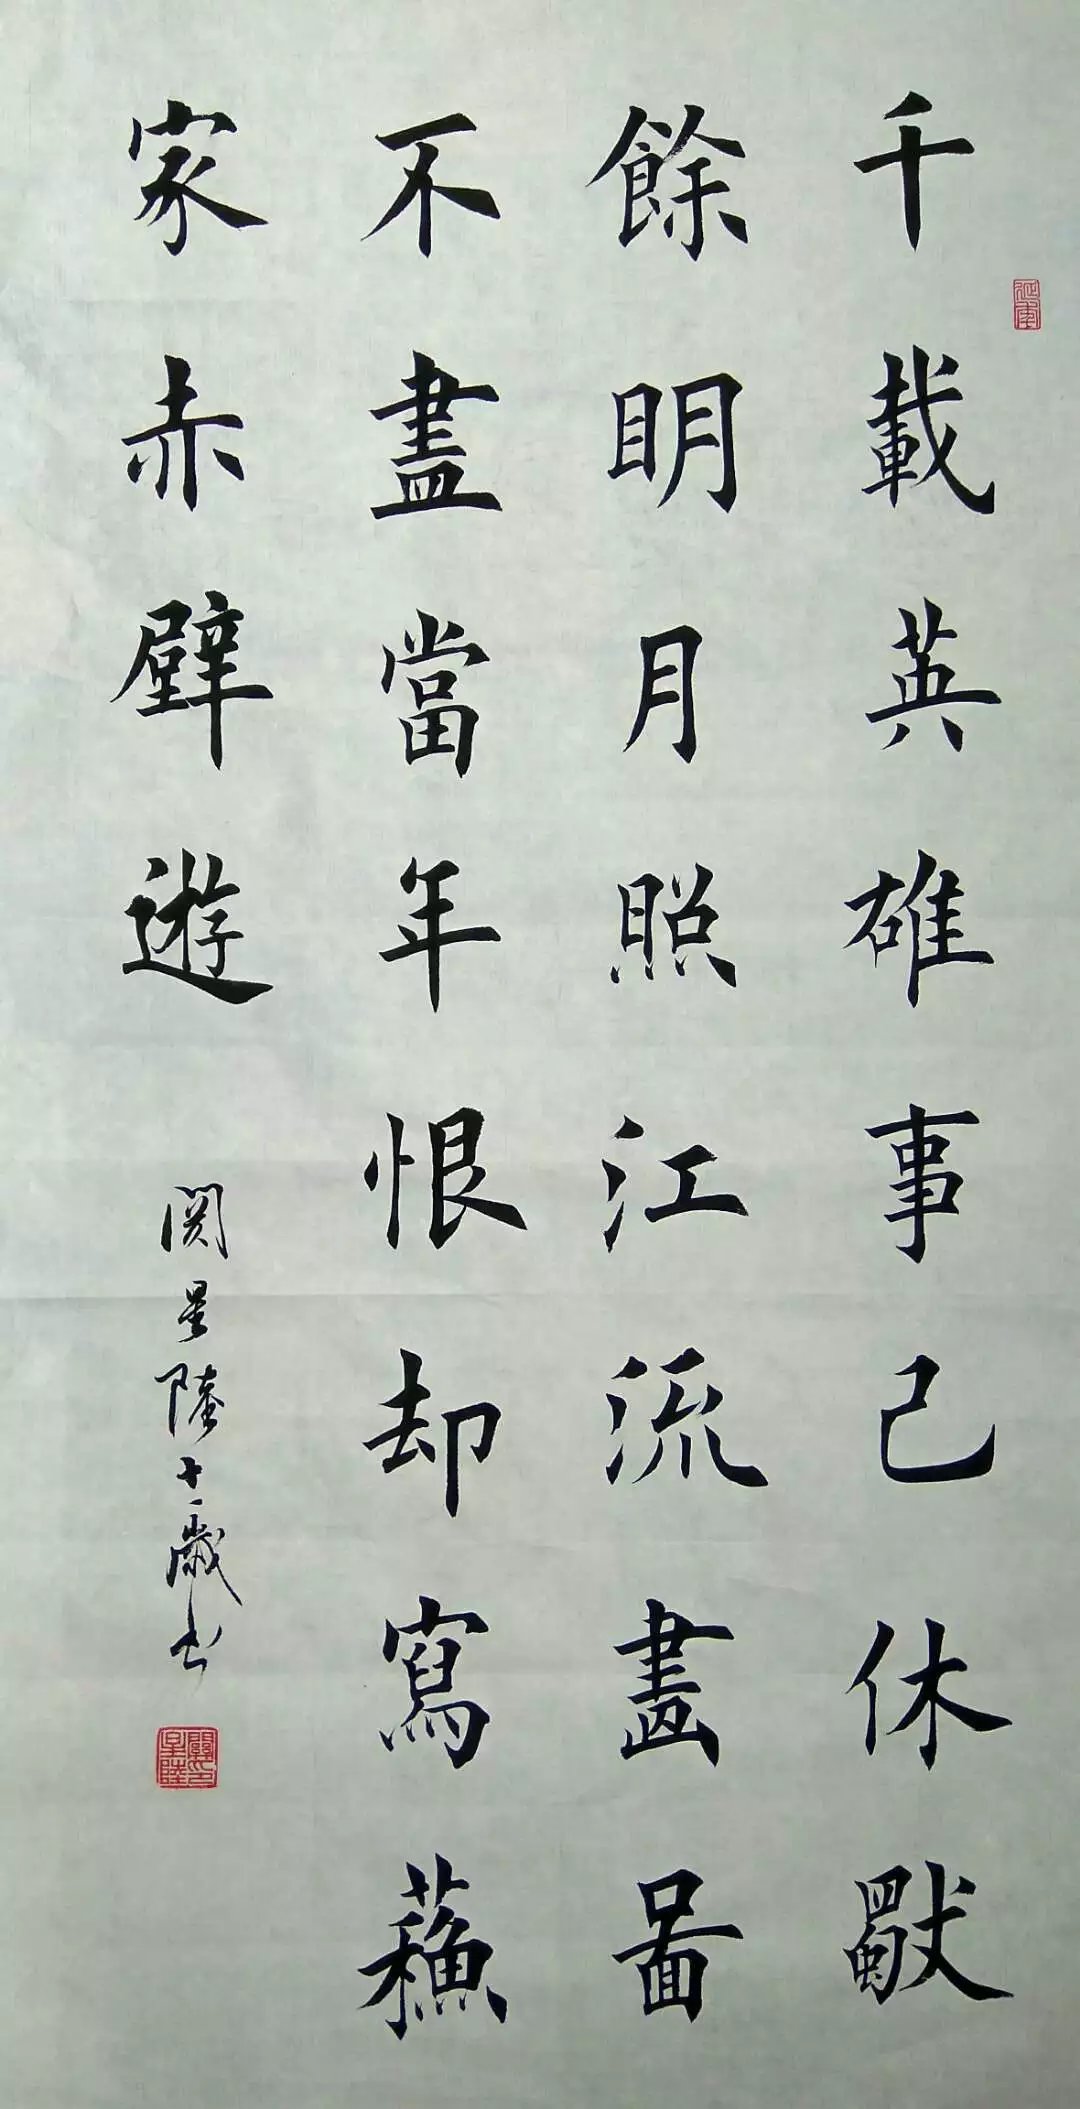 千載英雄事已休獨
餘眀月照江流畫啚
不盡當年恨却寫蘓
家赤壁遊
関星陸十一歲书